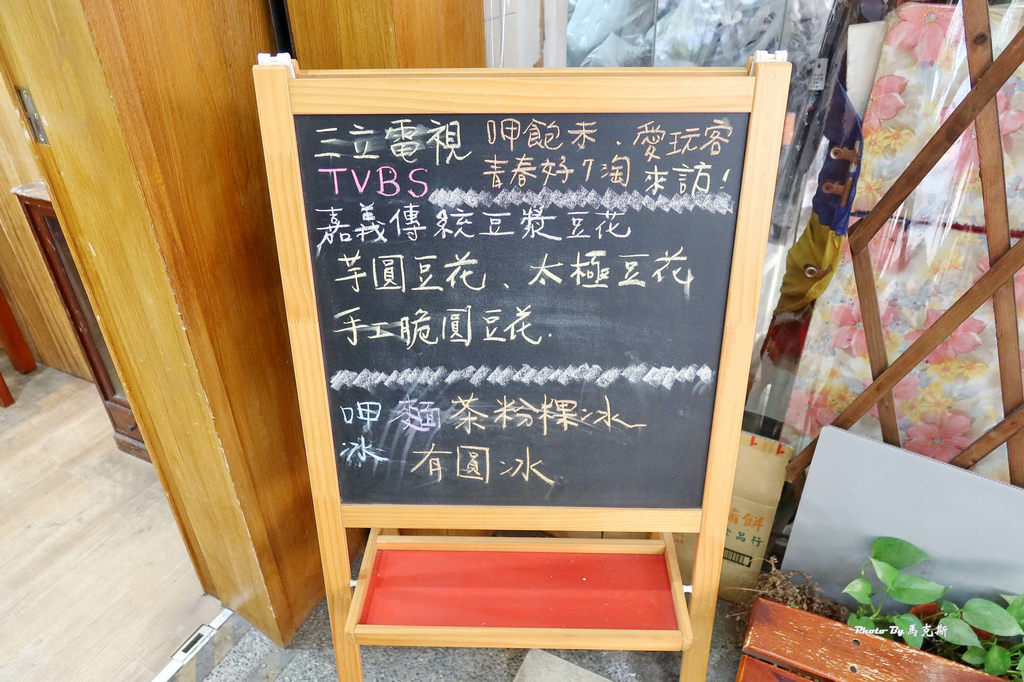 三立電視 呷飽未、愛玩客
TVBS 青春好7淘 來訪!
嘉義傳統豆漿豆花
芋圓豆花、太極豆花
手工脆圓豆花.
呷麵茶粉粿冰
冰 有圓冰
品行
Photo By 馬克斯